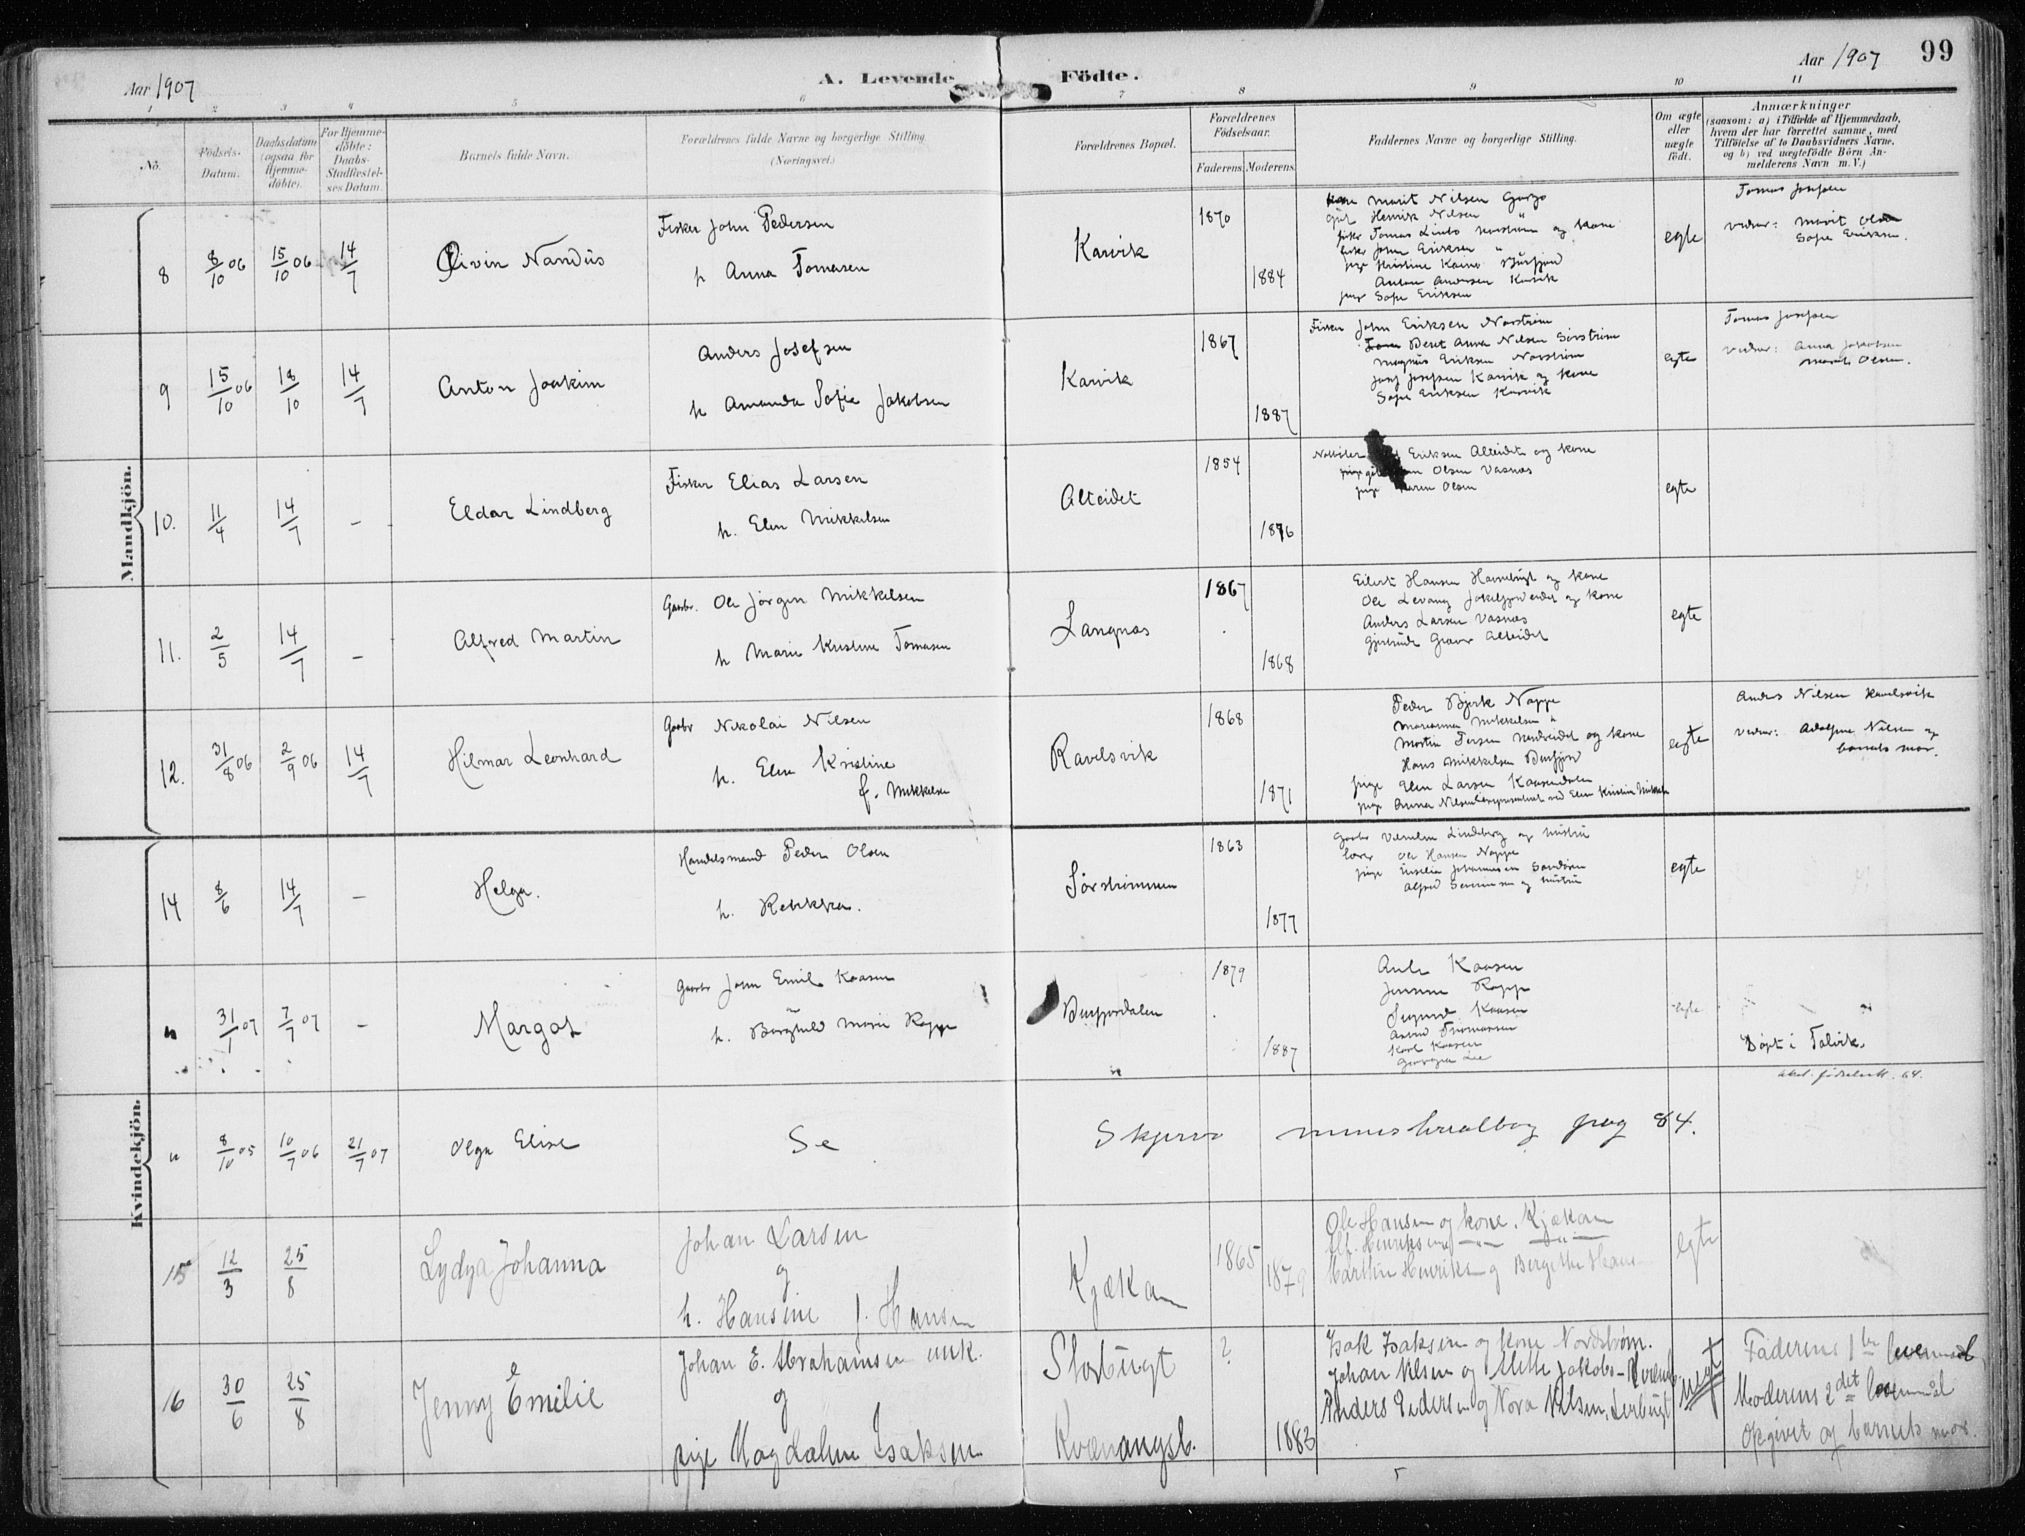 Aar 1907
A. Levende Födte.
Aar 1907
99
1 2 3 4 5 6 7 8 9 10 11
No.
Födsels-Datum.
Daabsdatum (ogsaa for Hjemmedöbte).
For Hjemmedöbte: Daabs-Stadfæstelses Datum.
Barnets fulde Navn.
Forældrenes fulde Navne og borgerlige Stilling. (Næringsvei.)
Forældrenes Bopæl.
Forældrenes Födselsaar.
Faderens Moderens
Faddernes Navne og borgerlige Stilling.
Om ægte eller uægte födt.
Anmærkninger
(saasom: a) i Tilfælde af Hjemmedaab,
hvem der har forrettet samme, med
Tilföielse af to Daabsvidners Navne,
og b) ved uægtefödte Börn Anmelderens Navn m. V.)
Mandkjön.
8
8/10 06
15/10 06
14/7
Eivin Nandus
Fisker John Pedersen
h Anna Tomasen
Karvik
1870
1884
Marit Nilsen Gargo
Henrik Nilsen "
John Eriksen "
Anton Andersen Karvik
pige Sofie Eriksen
egte
Tomas Josefsen
vidner: Marit Olsen
Sofie Eriksen.
9
15/10 06
18/10
14/7
Anton Joakim
Anders Josefsen
h Amanda Sofie Jakobsen
Karvik
1867
1887
Fisker John Eriksen Norström
Beret Anna Nilsen Sörström
Magnus Eriksen Norström
Josef Josefsen Karvik og kone
Sofie Eriksen Karvik
egte
Tomas Josefsen
vidner: Anna Jakobsen
Marit Olsen.
10.
11/4
14/7
-
Eldar Lindberg
Fisker Elias Larsen
h. Elen Mikkelsen
Alteidet
1854
1876
Eriksen Alteidet og kone
Olsen Vasnæs
pige Karen Olsen
egte
11.
2/5
14/7
-
Alfred Martin
Gaarbr. Ole Jörgen Mikkelsen
h Marie Kristine Tomasen
Langnæs
1867
1868
Eilert Hansen og kone
Ole Levang Jökelfjordeidet og kone
Anders Larsen Vasnæs
Gjertrude Graver Alteidet
egte
12.
31/8 06
2/9 06
14/7
Hilmar Leonhard
Gaarbr Nikolai Nilsen
h. Elen Kristine
f. Mikkelsen
Ravelsvik
1868
1871
Peder Bjerk Nappe
Marianna Mikkelsen "
Martin Persen og kone
Hans Mikkelsen Burfjord
pige Elen Larsen Kaasendalen
pige Anna Nilsen ved Elen Kristine Mikkelsen
egte
Anders Nilsen Ravelsvik
vidner: Adolfine Nilsen og
barnets mor.
Kvindekjön.
14
8/6
14/7
-
Helga.
Handelsmand Peder Olsen
h. Rebekka.
Sörströmmen
1863
1877
Gaarbr Vilhelm Lindberg og hustru
lærer Ole Hansen Nappe
pige Johannesen Sandören
Alfred Severinsen og hustru
egte
"
31/1 07
7/7 07
-
Margot
Gaarbr John Emil Kaasen
h. Borghild Marie Rapp
Burfjordalen
1879
1887
Kaasen
Rapp
Sigurd Kaasen
Astrid Thomassen
Karl Kaasen
Georgia Lie
egte
Döpt i Talvik.
"
8/10 05
10/7 06
21/7 07
Olga Elise
Se Skjervø ministerialbog pag 84.
15
12/3
25/8
Lydya Johanna
Johan Larsen
og
h. Hansine f. Hansen
Kjækan
1865
1879
Ole Hansen og kone, Kjækan
Henriksen
Marthin Henriks og Bergithe Hans
egte
16
30/6
25/8
Jenny Emilie
Johan E. Abrahamsen unk.
og
pige Magdalene Isaksen
Storbugt
Kvænangsb.
?
1883
Isak Isaksen og kone Nordstrøm.
Johan Nilsen og Mette Jakobs-
Anders Pedersen og Nora Nilsen, Lerbugt
uegt
Faderens 1ste leiermaal
Moderens 2det leiermål
opgivet af barnets mor.